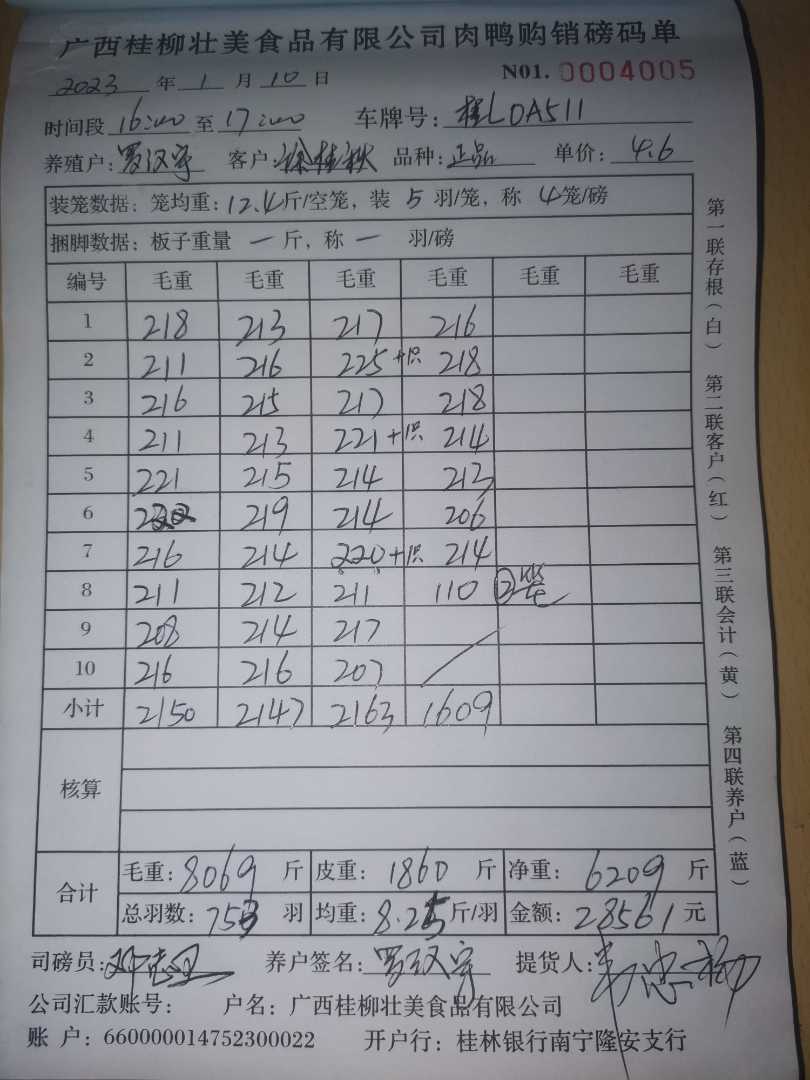 广西桂柳壮美食品有限公司肉鸭购销磅码单
2023 年 1 月 10 日 N01. 0004005
时间段 16:00 至 17:00 车牌号: 桂LDA511
养殖户: 罗汉宇 客户: 徐桂秋 品种: 正品 单价: 4.6
装笼数据: 笼均重: 12.4 斤/空笼, 装 5 羽/笼, 称 4 笼/磅
捆脚数据: 板子重量 一 斤, 称 一 羽/磅
编号 毛重 毛重 毛重 毛重 毛重 毛重
1 218 213 217 216
2 211 216 225+1只 218
3 216 215 217 218
4 211 213 221+1只 214
5 221 215 214 213
6 222 219 214 206
7 216 214 220+1只 214
8 211 212 211 110 ②笼
9 208 214 217
10 216 216 207
小计 2150 2147 2163 1609
核算
合计 毛重: 8069 斤 皮重: 1860 斤 净重: 6209 斤
总羽数: 753 羽 均重: 8.25 斤/羽 金额: 28561 元
司磅员: 养户签名: 罗汉宇 提货人:
公司汇款账号: 户名: 广西桂柳壮美食品有限公司
账 户: 660000014752300022 开户行: 桂林银行南宁隆安支行
第一联存根(白) 第二联客户(红) 第三联会计(黄) 第四联养户(蓝)